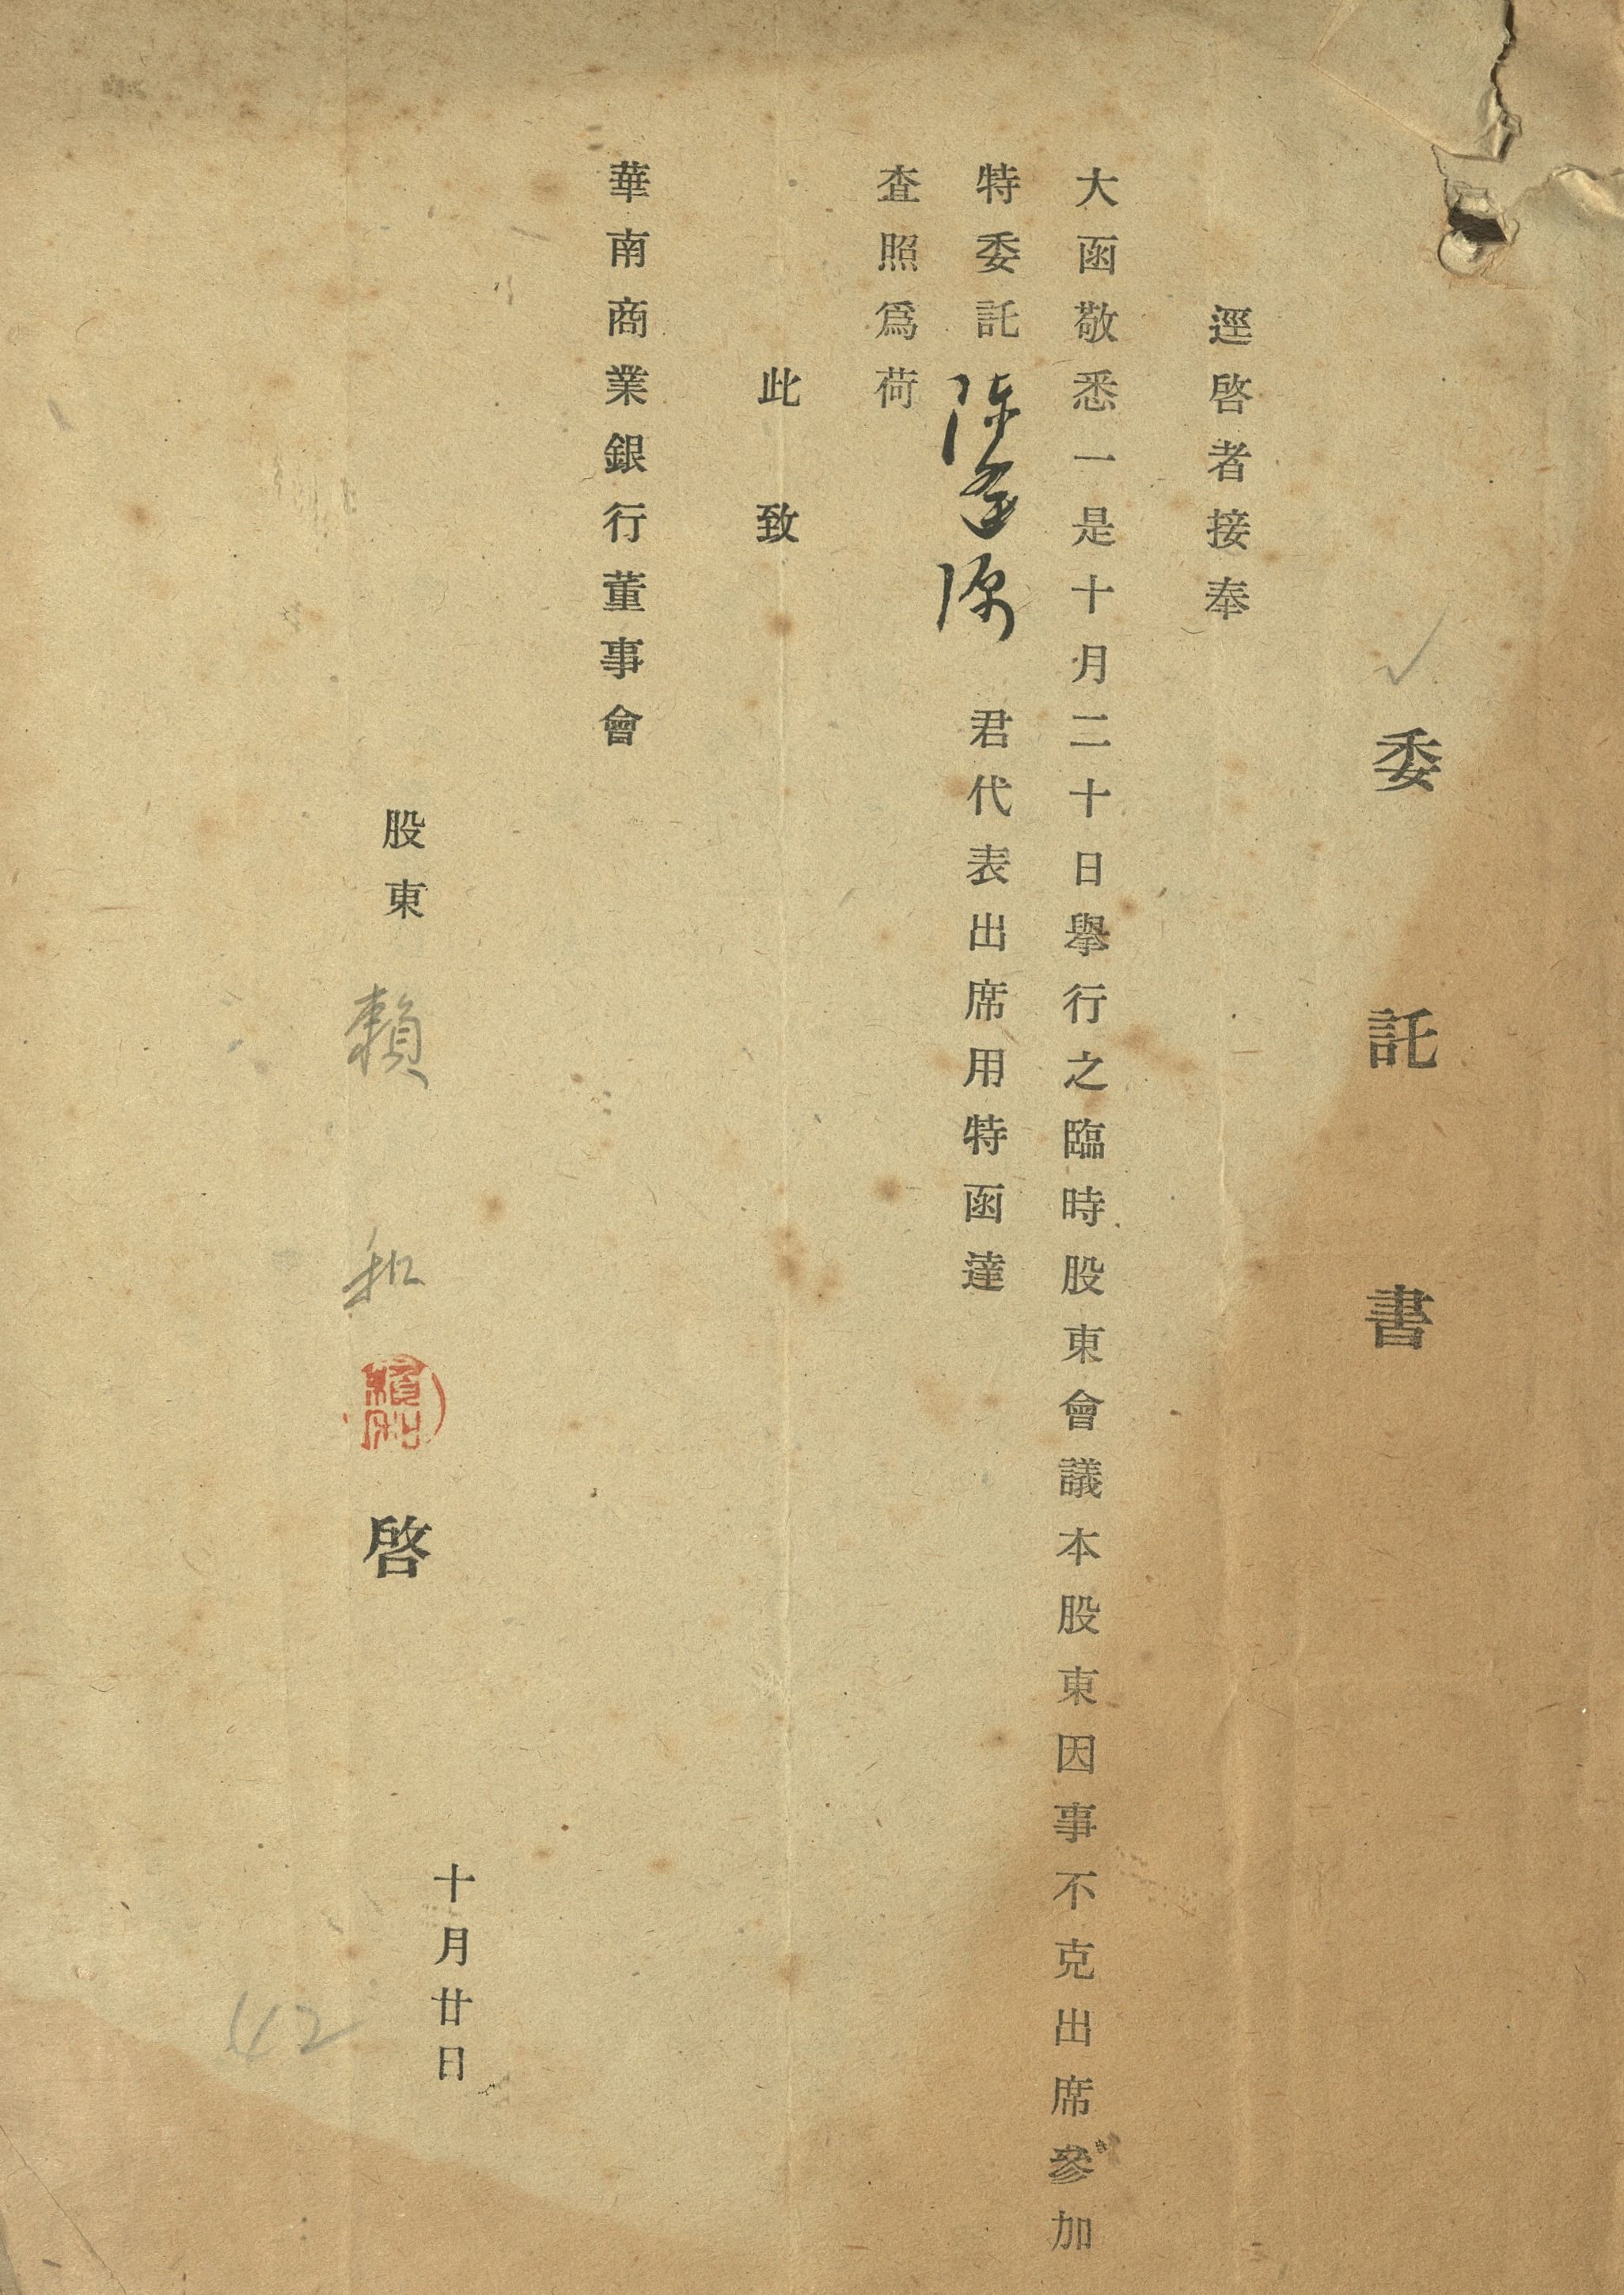 委託書
逕啓者接奉
大函敬悉一是十月二十日擧行之臨時股東會議本股東因事不克出席參加
特委託陳逢源君代表出席用特函達
査照爲荷
此致
華南商業銀行董事會
股東 賴和 啓
賴和
十月廿日
42